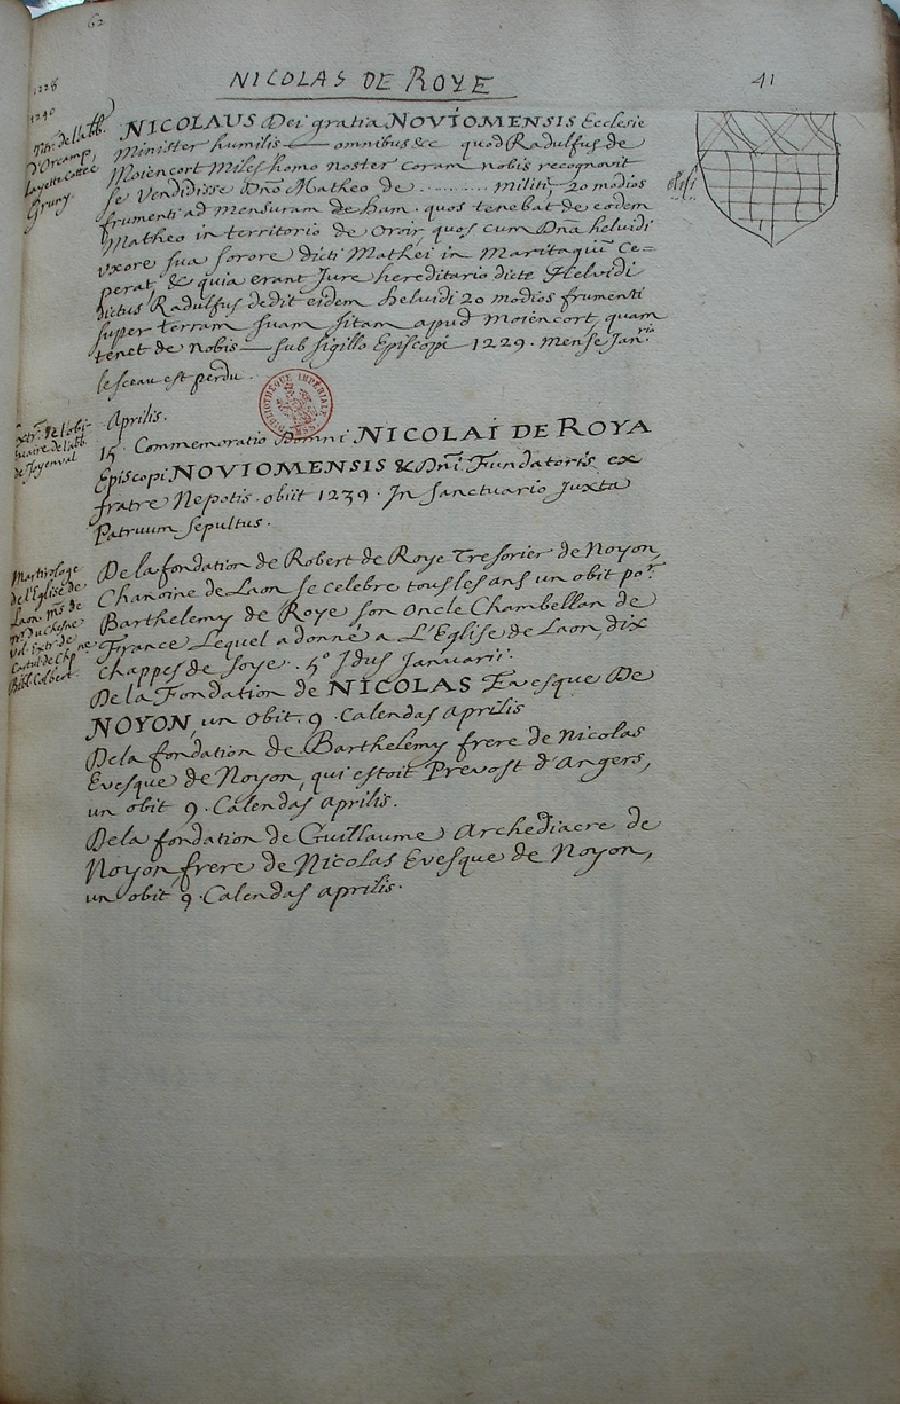 62
NICOLAS DE ROYE
41
1228
1240
Titr. de l'abb.
D'Orcamp,
Layette cottée
Gruny.
NICOLAUS Dei gratia NOVIOMENSIS Ecclesie
Minister humilis — omnibus &c quod Radulfus de
Moiencort Miles homo noster coram nobis recognovit
se Vendidisse Dno Matheo de .......... militi, 20 modios
frumenti ad mensuram de Ham. quos tenebat de eodem
Matheo in territorio de Oroir, quos cum Dna helvidi
vxore sua sorore dicti Mathei in Maritagiu Ce=
perat & quia erant Jure hereditario dicte Helvidi
dictus Radulfus dedit eidem helvidi 20 modios frumenti
super terram suam sitam apud Moiencort, quam
tenet de nobis — sub sigillo Episcopi 1229. mense Jan.ris
le sceau est perdu.
BIBLIOTHEQUE IMPÉRIALE MSS.
Extr. de l'obi-
tuaire de l'abb.
de Joyenval
Aprilis.
15. Commemoratio Domni NICOLAI DE ROYA
Episcopi NOVIOMENSIS & Dni Fundatoris ex
fratre Nepotis. obiit 1239. In Sanctuario Juxta
Patruum sepultus.
Martirologe
de l'Eglise de
Laon, ms de
mr duchesne
vol. extr. de
Bibl. Colbert.
De la fondation de Robert de Roye Tresorier de Noyon,
Chanoine de Laon se celebre tous les ans un obit por.
Barthelemy de Roye son Oncle Chambellan de
France Lequel a donné a L'Eglise de Laon, dix
chappes de soye. 5º Idus Januarii.
De la Fondation de NICOLAS Evesque De
NOYON, un obit. 9. Calendas aprilis
De la fondation de Barthelémy frere de Nicolas
Evesque de Noyon, qui estoit Prevost d'Angers,
un obit 9. Calendas aprilis.
De la fondation de Guillaume Archediacre de
Noyon, frere de Nicolas Evesque de Noyon,
un obit 9. Calendas aprilis.